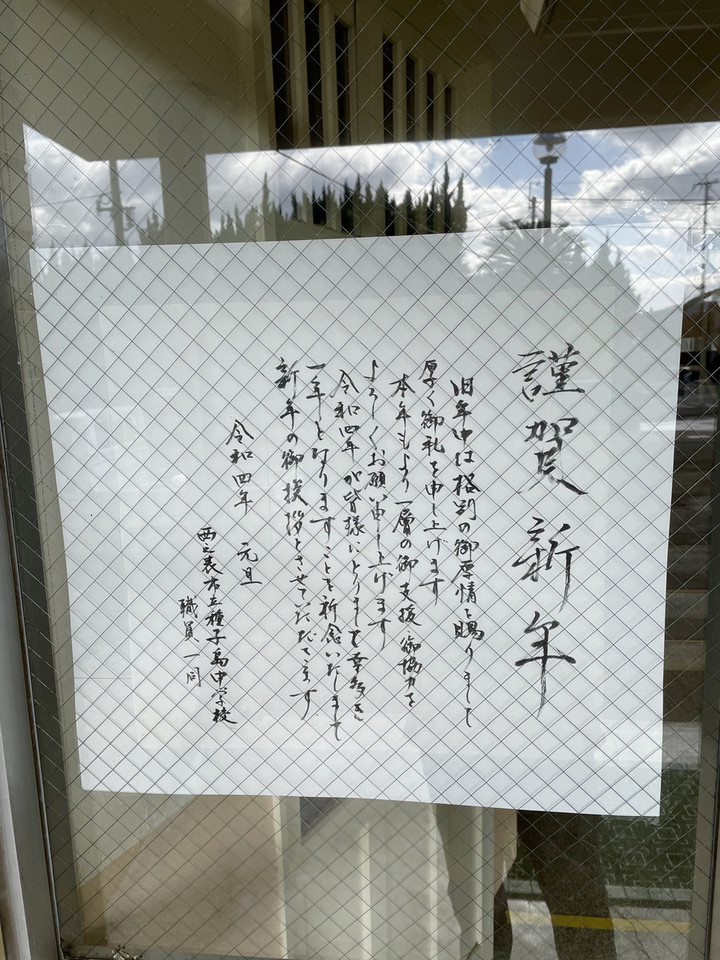 謹賀新年
旧年中は格別の御厚情を賜りまして
厚く御礼を申し上げます
本年もより一層の御支援・御協力を
よろしくお願い申し上げます
令和四年が皆様にとりまして幸多き
一年となりますことを祈念いたしまして
新年の御挨拶とさせていただきます
令和四年 元旦
西之表市立種子島中学校
職員一同